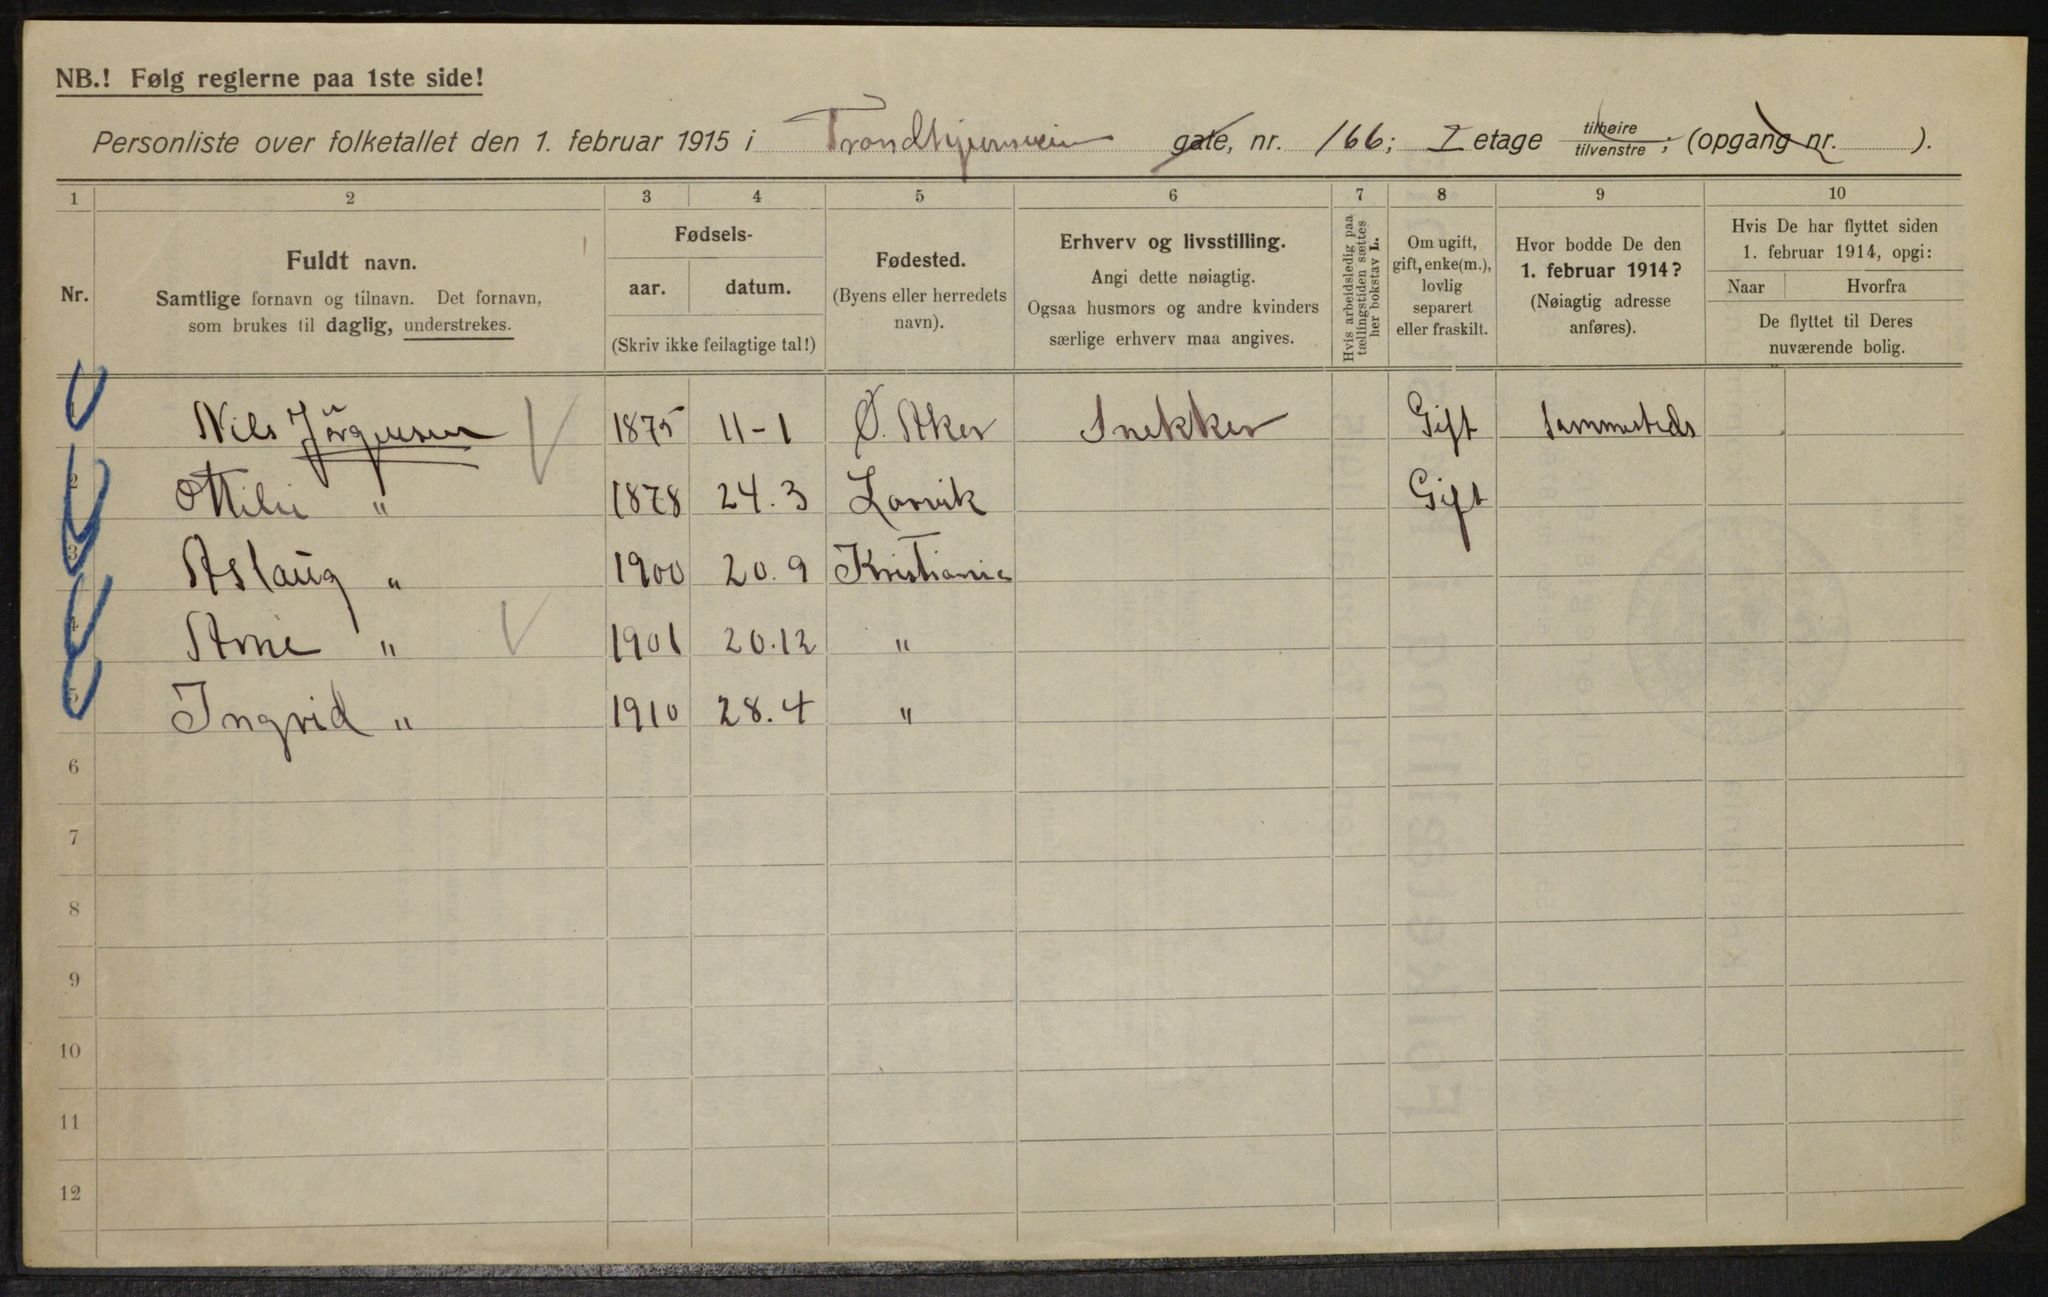 NB.! Følg reglerne paa 1ste side!
Personliste over folketallet den 1. februar 1915 i Trondhjemsveien gate, nr. 166; I etage tilhøire / tilvenstre; (opgang nr. ).
1 2 3 4 5 6 7 8 9 10
Nr.
Fuldt navn.
Samtlige fornavn og tilnavn. Det fornavn,
som brukes til daglig, understrekes.
Fødsels-
aar. datum.
(Skriv ikke feilagtige tal!)
Fødested.
(Byens eller herredets
navn).
Erhverv og livsstilling.
Angi dette nøiagtig.
Ogsaa husmors og andre kvinders
særlige erhverv maa angives.
Hvis arbeidsledig paa
tællingstiden sættes
her bokstav L.
Om ugift,
gift, enke(m.),
lovlig
separert
eller fraskilt.
Hvor bodde De den
1. februar 1914?
(Nøiagtig adresse
anføres).
Hvis De har flyttet siden
1. februar 1914, opgi:
Naar Hvorfra
De flyttet til Deres
nuværende bolig.
1 Nils Jörgensen 1875 11-1 Ø. Aker Snekker Gift Sammesteds
2 Ottilie " 1878 24.3 Larvik Gift
3 Aslaug " 1900 20.9 Kristiania
4 Arne " 1901 20.12 "
5 Ingrid " 1910 28.4 "
6
7
8
9
10
11
12